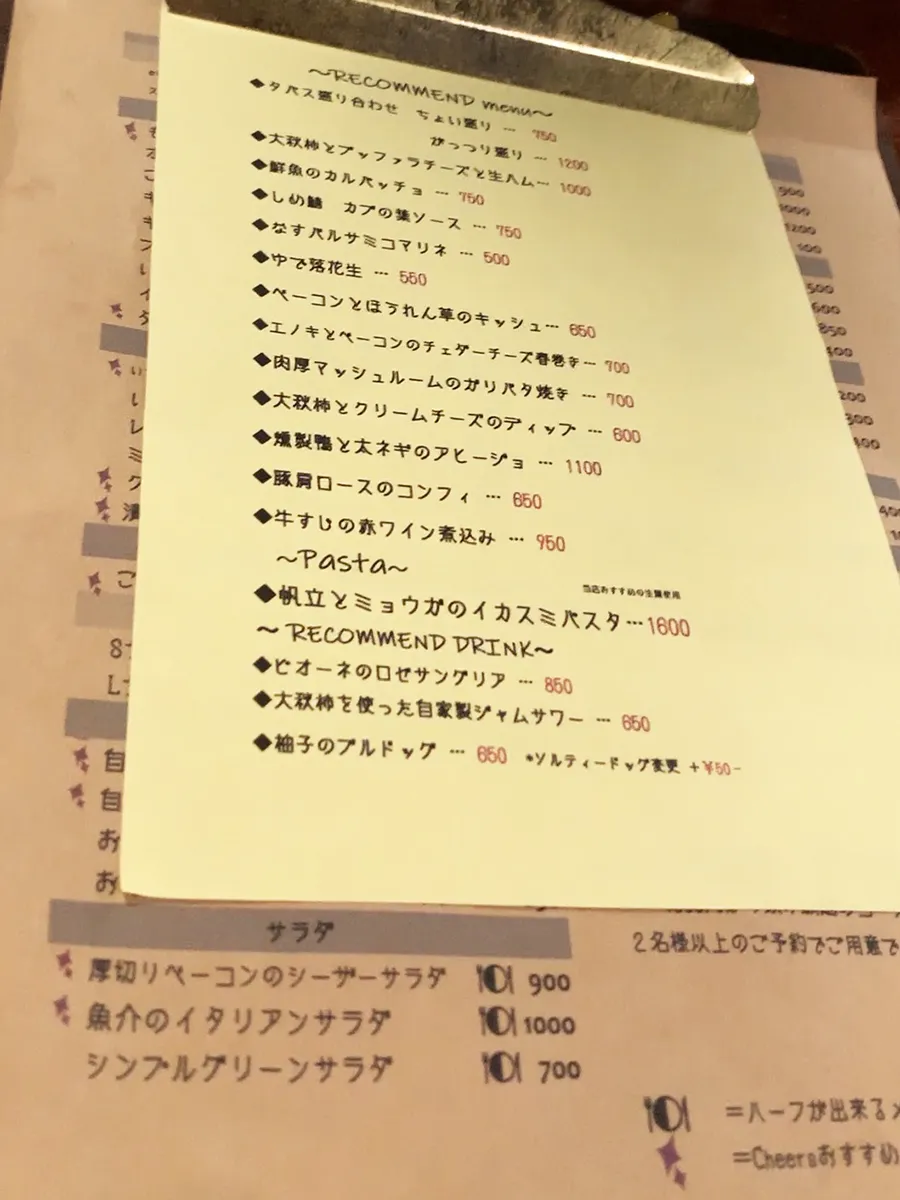 ～RECOMMEND menu～
◆タパス盛り合わせ　ちょい盛り … 750
がっつり盛り … 1200
◆大秋柿とブッファラチーズと生ハム… 1000
◆鮮魚のカルパッチョ … 750
◆しめ鯖　カブの葉ソース … 750
◆なすバルサミコマリネ … 500
◆ゆで落花生 … 550
◆ベーコンとほうれん草のキッシュ… 650
◆エノキとベーコンのチェダーチーズ春巻き… 700
◆肉厚マッシュルームのガリバタ焼き … 700
◆大秋柿とクリームチーズのディップ … 600
◆燻製鴨と太ネギのアヒージョ … 1100
◆豚肩ロースのコンフィ … 650
◆牛すじの赤ワイン煮込み … 950
～Pasta～
当店おすすめの生麺使用
◆帆立とミョウガのイカスミパスタ…1600
～RECOMMEND DRINK～
◆ピオーネのロゼサングリア … 850
◆大秋柿を使った自家製ジャムサワー … 650
◆柚子のブルドッグ … 650　*ソルティードッグ変更 +¥50-
サラダ
厚切りベーコンのシーザーサラダ 900
魚介のイタリアンサラダ 1000
シンプルグリーンサラダ 700
2名様以上のご予約でご用意で
=ハーフが出来る
=Cheersおすすめ